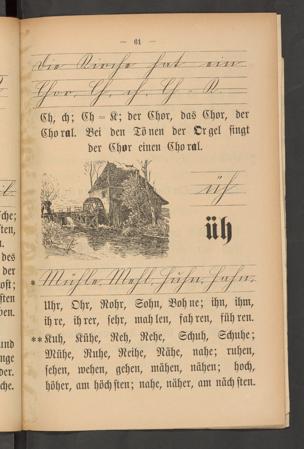 — 61 —
die Kirche hat ein
Chor, Ch, ch, Ch = K.
Ch, ch; Ch = K; der Chor, das Chor, der
Choral. Bei den Tönen der Orgel singt
der Chor einen Choral.
üh
üh
* Mühle, Mehl, Huhn, Hahn.
Uhr, Ohr, Rohr, Sohn, Bohne; ihn, ihm,
ihre, ihrer, sehr, mahlen, fahren, führen.
**Kuh, Kühe, Reh, Rehe, Schuh, Schuhe;
Mühe, Ruhe, Reihe, Nähe, nahe; ruhen,
sehen, wehen, gehen, mähen, nähen; hoch,
höher, am höchsten; nahe, näher, am nächsten.